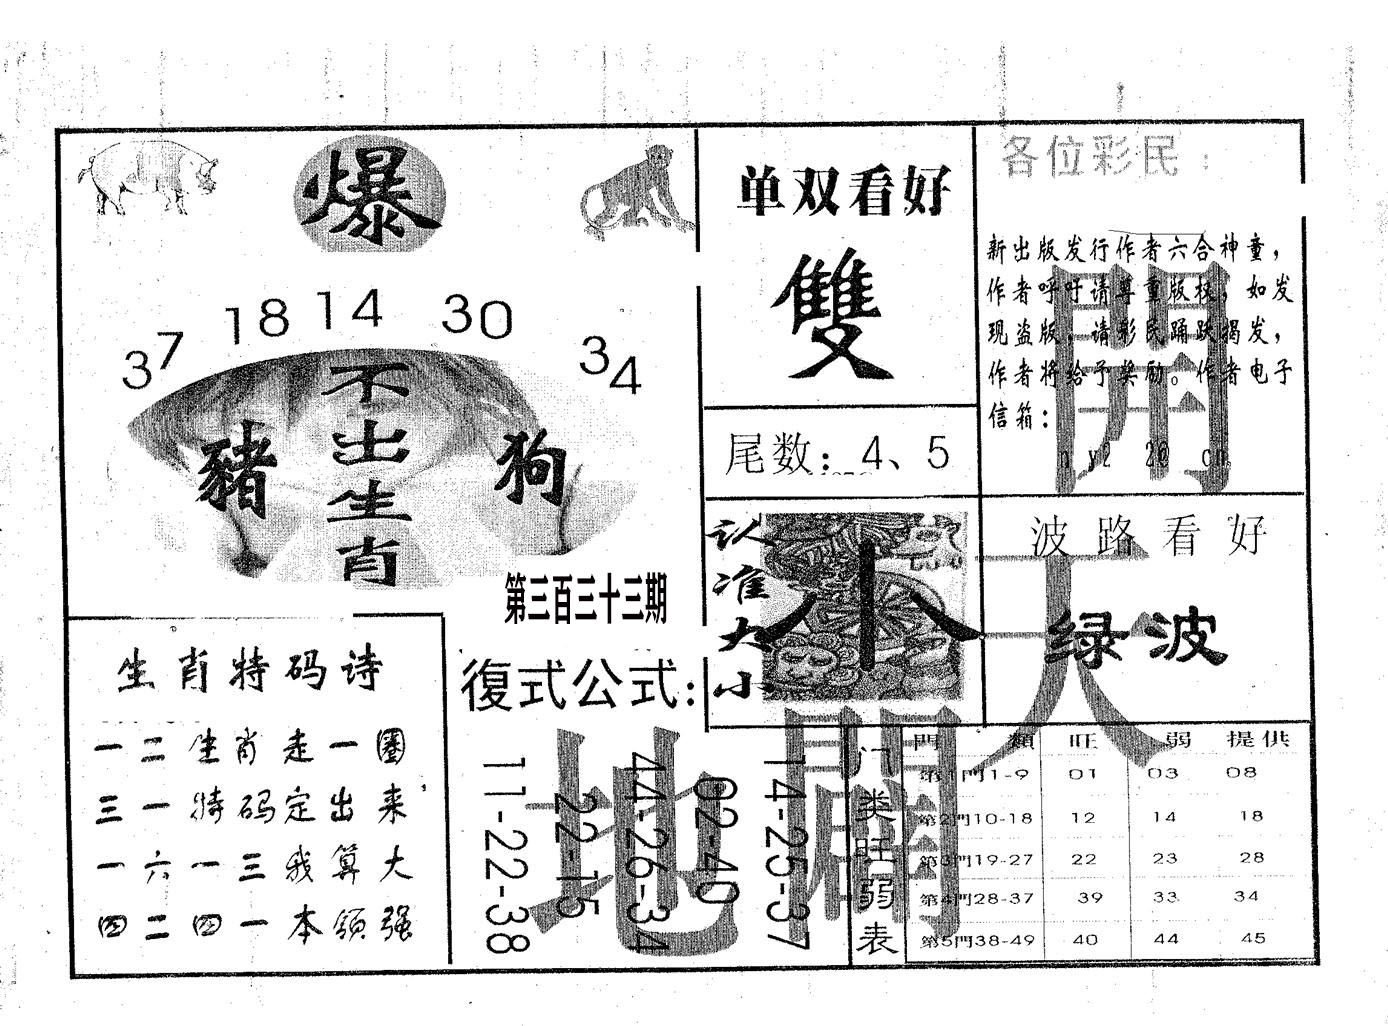 爆
37 18 14 30 34
不出生肖
豬
狗
第三百三十三期
单双看好
雙
尾数：4、5
各位彩民：
新出版发行作者六合神童，
作者呼吁请尊重版权，如发
现盗版，请彩民踊跃揭发，
作者将给予奖励。作者电子
信箱：
開
认准大小
小
波路看好
绿波
天
生肖特码诗
一二生肖走一圈
三一特码定出来
一六一三我算大
四二四一本领强
復式公式：
11-22-38
22-15
44-26-34
02-40
14-25-37
地
闢
门类旺弱表
門類 旺 弱 提供
第1門1-9 01 03 08
第2門10-18 12 14 18
第3門19-27 22 23 28
第4門28-37 39 33 34
第5門38-49 40 44 45